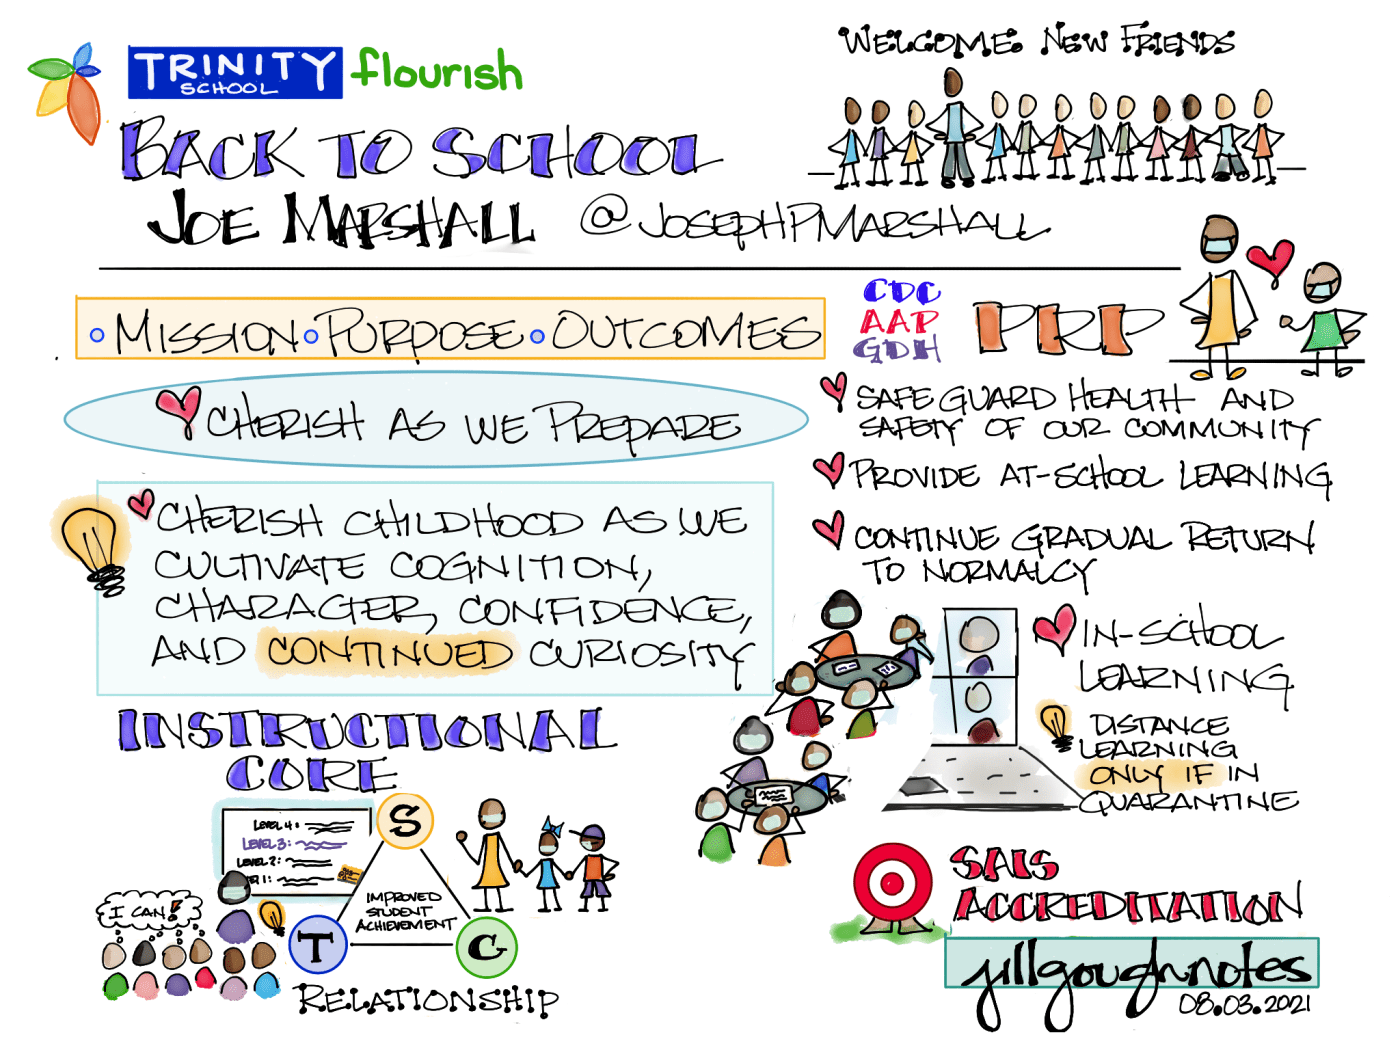 TRINITY
SCHOOL
flourish
BACK TO SCHOOL
JOE MARSHALL @JOSEPHPMARSHALL
WELCOME NEW FRIENDS
• MISSION • PURPOSE • OUTCOMES
CHERISH AS WE PREPARE
CHERISH CHILDHOOD AS WE
CULTIVATE COGNITION,
CHARACTER, CONFIDENCE,
AND CONTINUED CURIOSITY
CDC
AAP
GDH
PRP
SAFE GUARD HEALTH AND
SAFETY OF OUR COMMUNITY
PROVIDE AT-SCHOOL LEARNING
CONTINUE GRADUAL RETURN
TO NORMALCY
IN-SCHOOL
LEARNING
DISTANCE
LEARNING
ONLY IF IN
QUARANTINE
INSTRUCTIONAL
CORE
LEVEL 4:
LEVEL 3:
LEVEL 2:
I CAN!
S
IMPROVED
STUDENT
ACHIEVEMENT
T
C
RELATIONSHIP
SAIS
ACCREDITATION
jillgoughnotes
08.03.2021